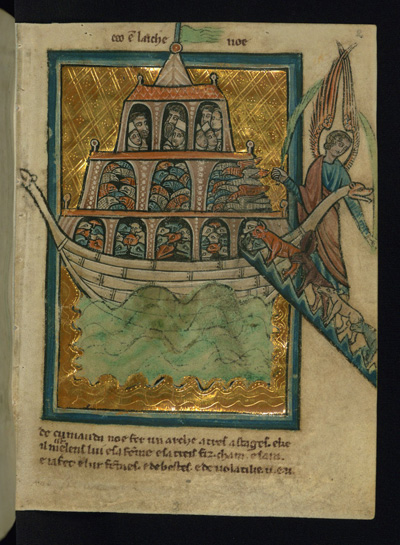 ceo est larche noe
de cumanda noe fet un arche a treis astages. e ke
il meient lui e sa feme e sa treis fiz. cham. e sem.
e iafet e lur femes. e de bestes. e de volatilie. v. e. v.